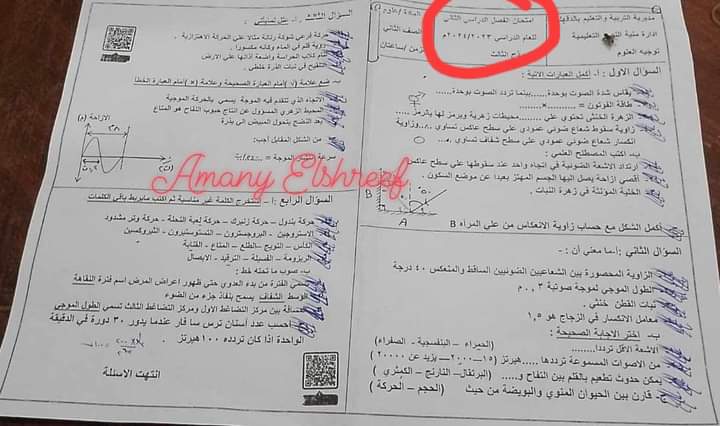 مديرية التربية والتعليم بالدقهلية
ادارة منية النصر التعليمية
توجيه العلوم
امتحان الفصل الدراسي الثاني
للعام الدراسي ٢٠٢٣/٢٠٢٤م
الصف الثاني
الزمن /ساعتان
السؤال الاول : أ- أكمل العبارات الاتية :
يقاس شدة الصوت بوحدة...... بينما تردد الصوت بوحدة......
طاقة الفوتون = ..........×..........
الزهرة الخنثي تحتوي علي ...... محيطات زهرية ويرمز لها بالرمز ......
زاوية سقوط شعاع ضوئي عمودي علي سطح عاكس تساوي ...... وزاوية
انكسار شعاع ضوئي عمودي علي سطح شفاف تساوي ......
ب- اكتب المصطلح العلمي :
ارتداد الاشعة الضوئية في اتجاه واحد عند سقوطها علي سطح عاكس
أقصي ازاحة يصل اليها الجسم المهتز بعيدا عن موضع السكون .
الخلية المؤنثة في زهرة النبات .
أكمل الشكل مع حساب زاوية الانعكاس من علي المرآه B
B
A
السؤال الثاني : أ-ما معني أن :-
الزاوية المحصورة بين الشعاعين الضوئيين الساقط والمنعكس ٤٠ درجة
الطول الموجي لموجة صوتية ٠,٣ م
نبات القطن خنثي .
معامل الانكسار في الزجاج هو ١,٥
ب- أختر الاجابة الصحيحة :
الاشعة الاقل ترددا........ (الحمراء – البنفسجية - الصفراء)
من الاصوات المسموعة ترددها ..... هيرتز (١٥–٢٠٠٠–يزيد عن ٢٠٠٠٠)
يمكن حدوث تطعيم بالقلم بين التفاح و..... (البرتقال– النارنج – الكمثري )
قارن بين الحيوان المنوي والبويضة من حيث (الحجم – الحركة )
السؤال الثالث : أ- علل لما يأتي :
حركة فرعي شوكة رنانة مثالا علي الحركة الاهتزازية .
رؤية قلم في الماء وكأنه مكسورا .
التلقيح في نبات الذرة خلطي .
ب- ضع علامة (√) أمام العبارة الصحيحة وعلامة (×) أمام العبارة الخطأ
الاتجاه الذي تتقدم فيه الموجة يسمي بالحركة الموجية
المحيط الزهري المسؤول عن انتاج حبوب اللقاح هو المتاع
بعد النضج يتحول المبيض الي بذرة
من الشكل المقابل أجب:
سرعة انتشار الموجة =
الازاحة (م)
Amany Elshreef
السؤال الرابع : أ – استخرج الكلمة غير مناسبة ثم اكتب مايربط باقي الكلمات
حركة بندول – حركة زنبرك – حركة لعبة النحلة – حركة وتر مشدود
الاستروجين - البروجسترون – التستوستيرون - الثيروكسين
الكأس – التويج –الطلع – المتاع - القنابة
الريزومة – الفسيلة – الترقيد – الابصال
ب- صوب ما تحته خط :
تسمي الفترة من بدء العدوي حتي ظهور اعراض المرض اسم فترة النقاهة
الوسط الشفاف يسمح بنفاذ جزء من الضوء
مسافة بين مركز التضاغط الاول ومركز التضاغط الثالث تسمي الطول الموجي
احسب عدد أسنان ترس سا فار عندما يدور ٣٠ دورة في الدقيقة
الواحدة اذا كان تردده ١٠٠ هيرتز .
انتهت الاسئلة